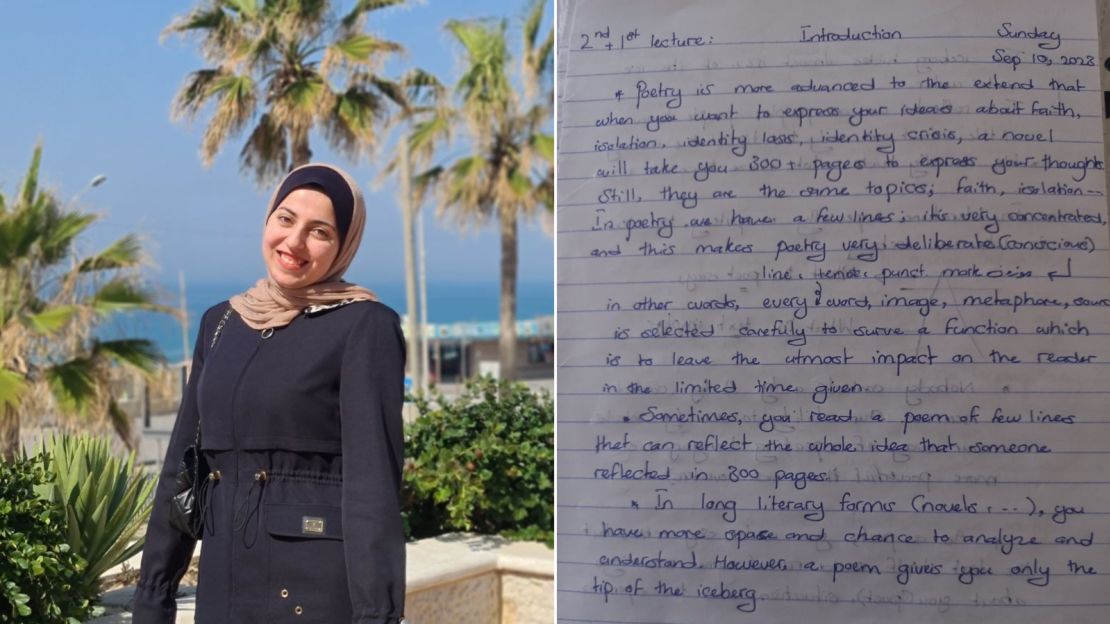 2nd + 1st lecture: Introduction Sunday
Sep 10, 2023
* Poetry is more advanced to the extend that
when you want to express your ideas about faith,
isolation, identity loss, identity crisis, a novel
will take you 300+ pages to express your thoughts
Still, they are the same topics; faith, isolation --
In poetry we have a few lines; it's very concentrated,
and this makes poetry very deliberate (conscious)
line, punct. mark
in other words, every word, image, metaphore,
is selected carefuly to surve a function which
is to leave the utmost impact on the reader
in the limited time given.
• Sometimes, you read a poem of few lines
that can reflect the whole idea that someone
reflected in 300 pages.
* In long literary forms (novels, ...), you
have more space and chance to analyze and
understand. However, a poem gives you only the
tip of the iceberg.